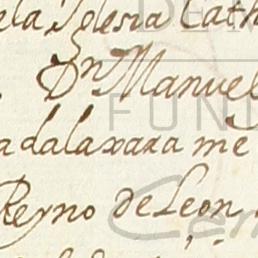 ela Iglesia Cath
Dn Manuel
adalaxara me
Reyno de Leon